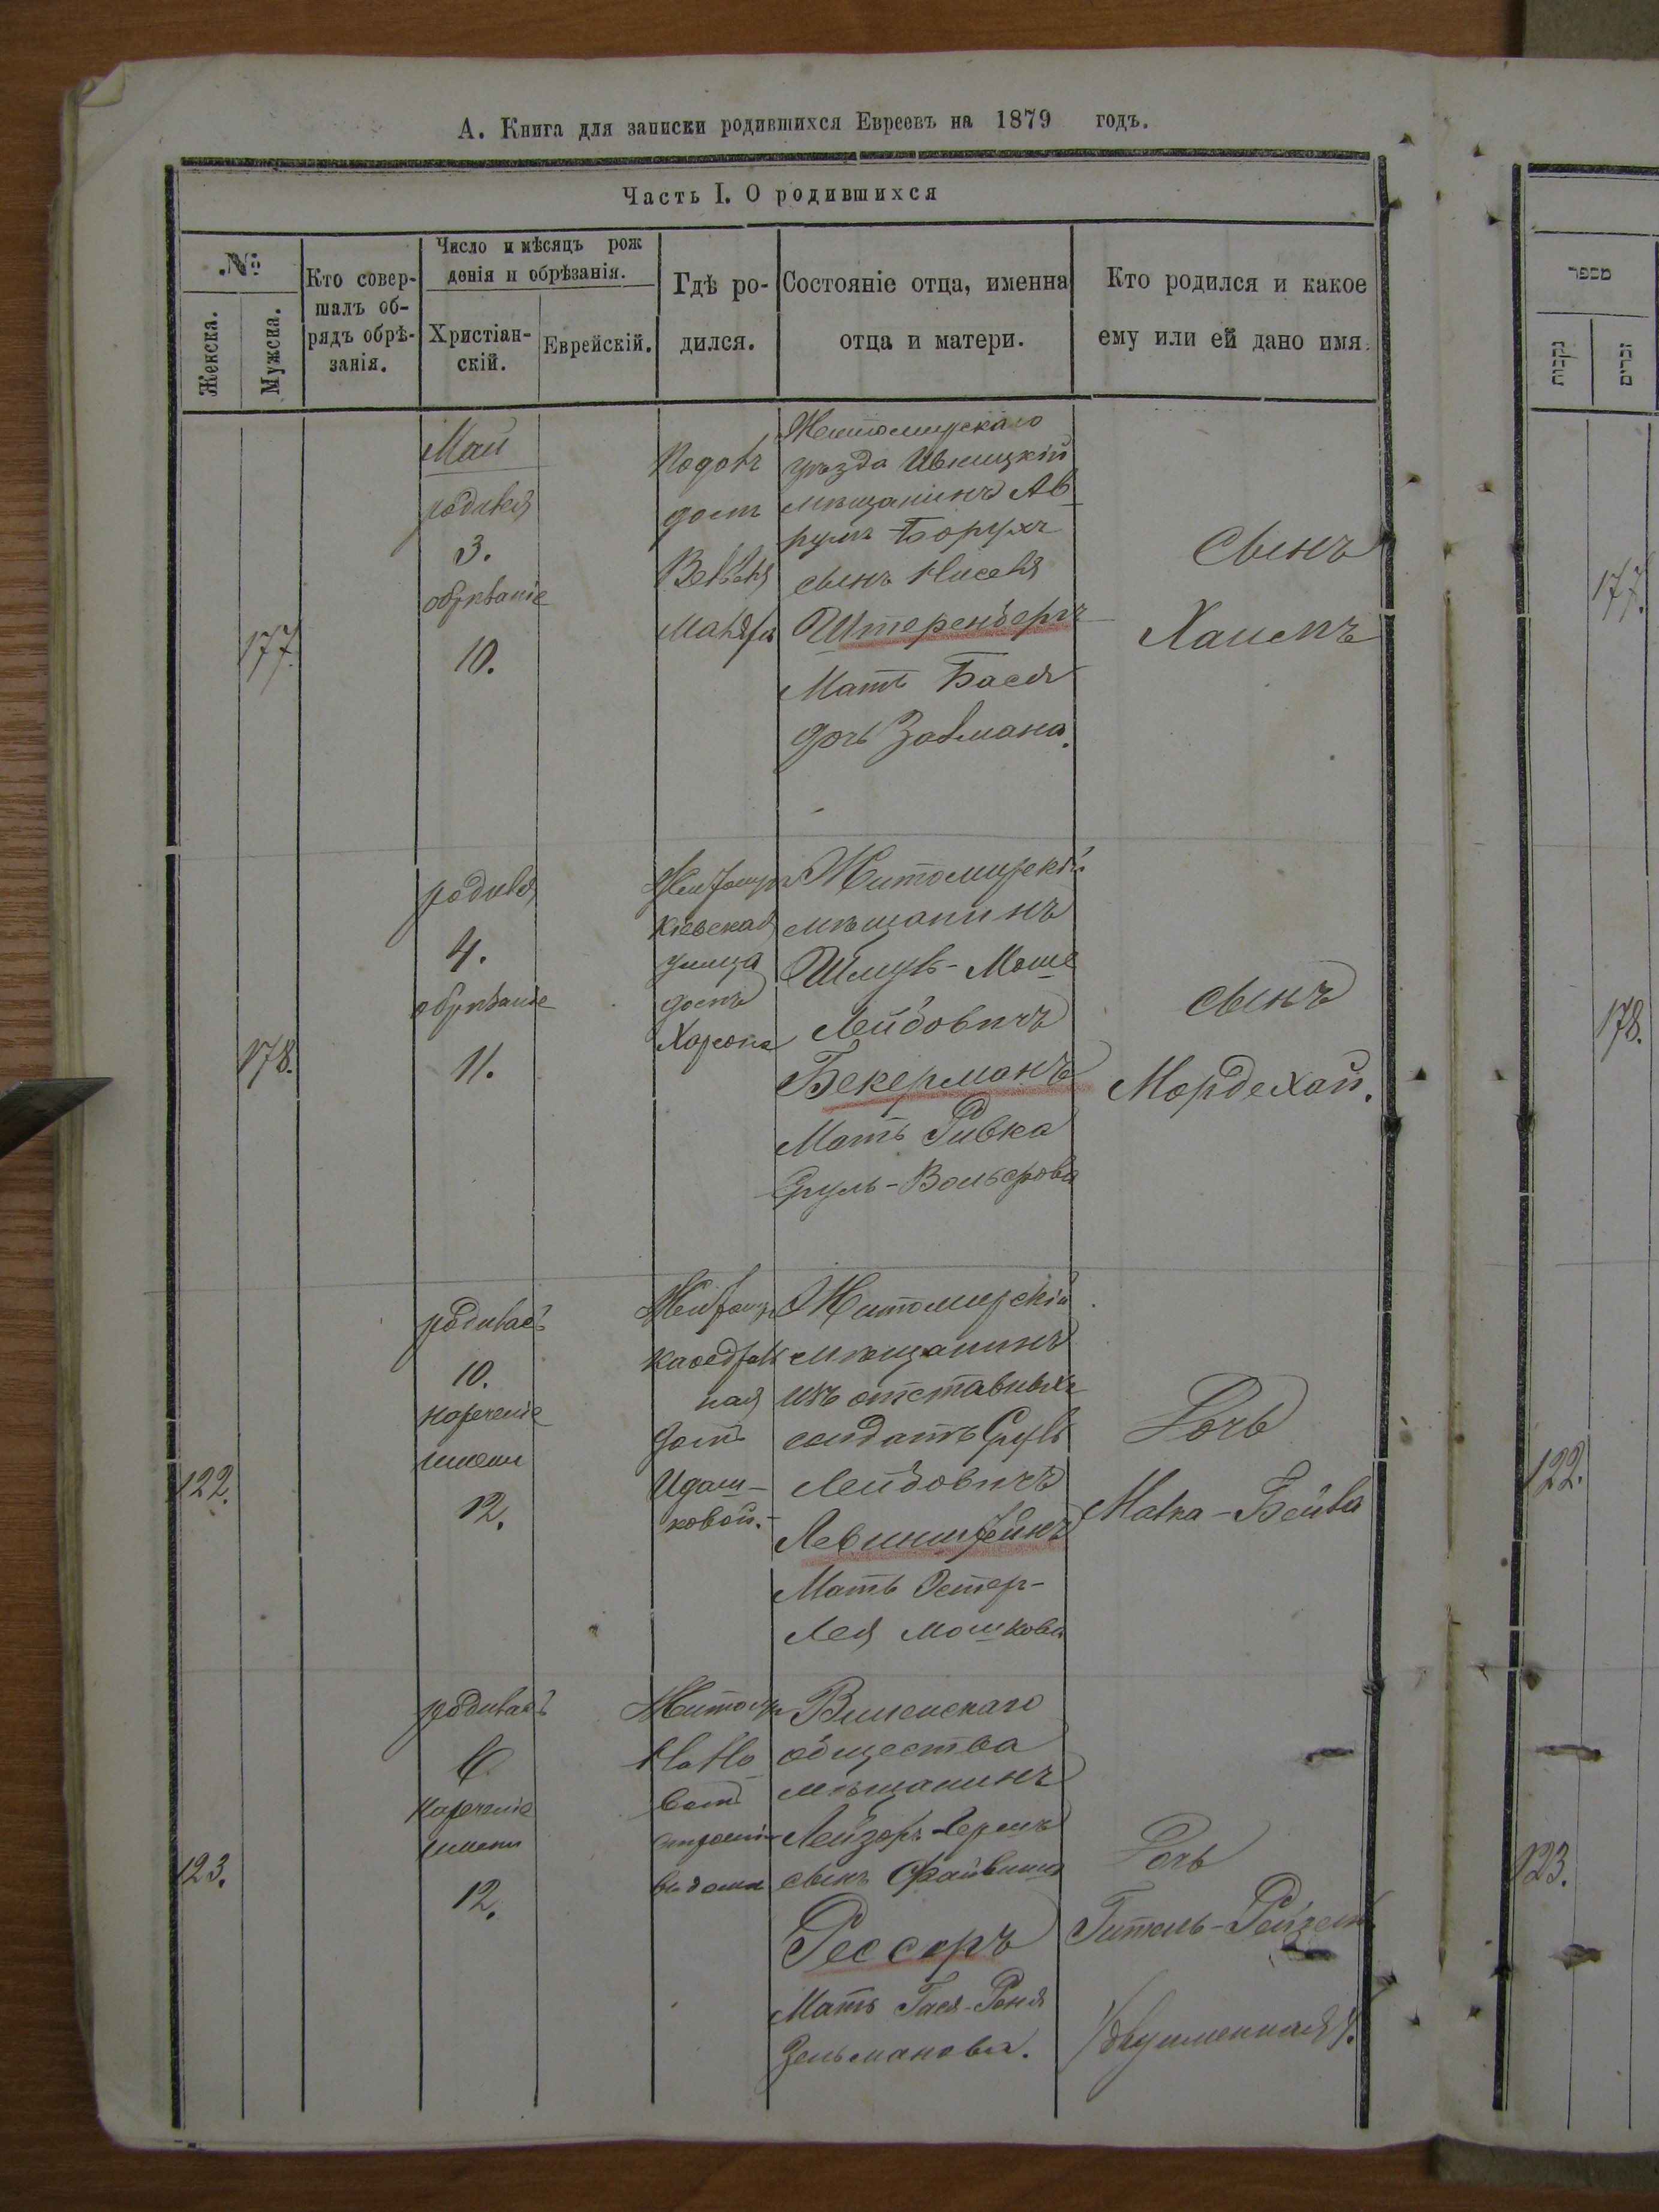 А. Книга для записки родившихся Евреевъ на 1879 годъ.
Часть I. О родившихся
№
Женска.
Мужска.
Кто совер-
шалъ об-
рядъ обрѣ-
занія.
Число и мѣсяцъ рож
денія и обрѣзанія.
Христіан-
скій.
Еврейскій.
Гдѣ ро-
дился.
Состояніе отца, именна
отца и матери.
Кто родился и какое
ему или ей дано имя.
מספר
נקבות
זכרים
177.
Май
родился
3.
обрѣзаніе
10.
домъ
Житомирскаго
уѣзда Ивницкій
мѣщанинъ Ав-
румъ Борухъ
сынъ Ниселя
Штеренбергъ
Мать Бася
дочь Залмана.
Сынъ
Хаимъ
177.
178.
родился
4.
обрѣзаніе
11.
Житомиръ
Кіевская
улица
домъ
Житомирскій
мѣщанинъ
Шмуль-Моше
Лейбовичъ
Бекерманъ
Мать Ривка
Сруль-Вольфова
сынъ
Мордехай.
178.
122.
родилась
10.
нареченіе
имени
12.
Житомиръ
Каѳедраль
ная
домъ
Идаш-
ковой.-
Житомирскій
мѣщанинъ
изъ отставныхъ
солдатъ Сруль
Лейбовичъ
Левинштейнъ
Мать Эстер-
Лея Мошкова
Дочь
Малка-Бейла
122.
123.
родилась
нареченіе
имени
12.
Житомиръ
общества
мѣщанинъ
Лейзоръ-Германъ
сынъ Файвиша
Рессоръ
Мать Гася-Роня
Зельманова.
Дочь
Гитель-Рейзель
/двуименная/.
123.